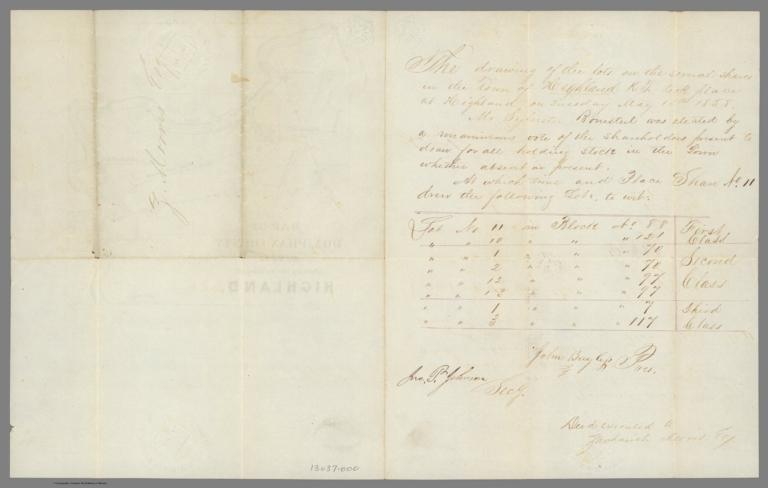 The drawing of the lots on the several shares
in the Town of Highland K.T. took place
at Highland, on Tuesday May 1858.
Mr Sylvester Bonesteel was elected by
a unanimous vote of the shareholders present to
draw for all holding stock in the Town
whether absent or present.
At which time and Place Share No. 11
drew the following Lots, to wit:
Lot No 11 in Block No 88 First
" " 10 " " " 121 Class
" " 1 " " " 70 Second
" " 2 " " " 70
" " 12 " " " 97 Class
" " 12 " " " 97
" " 1 " " " 7 Third
" " 3 " " " 117 Class
John Pres.
Jno. P. Johnson
Secy.
Deed executed to
Zachariah Morris Esq
Z. Morris Esq
DONIPHAN COUNTY
HIGHLAND
13037.000